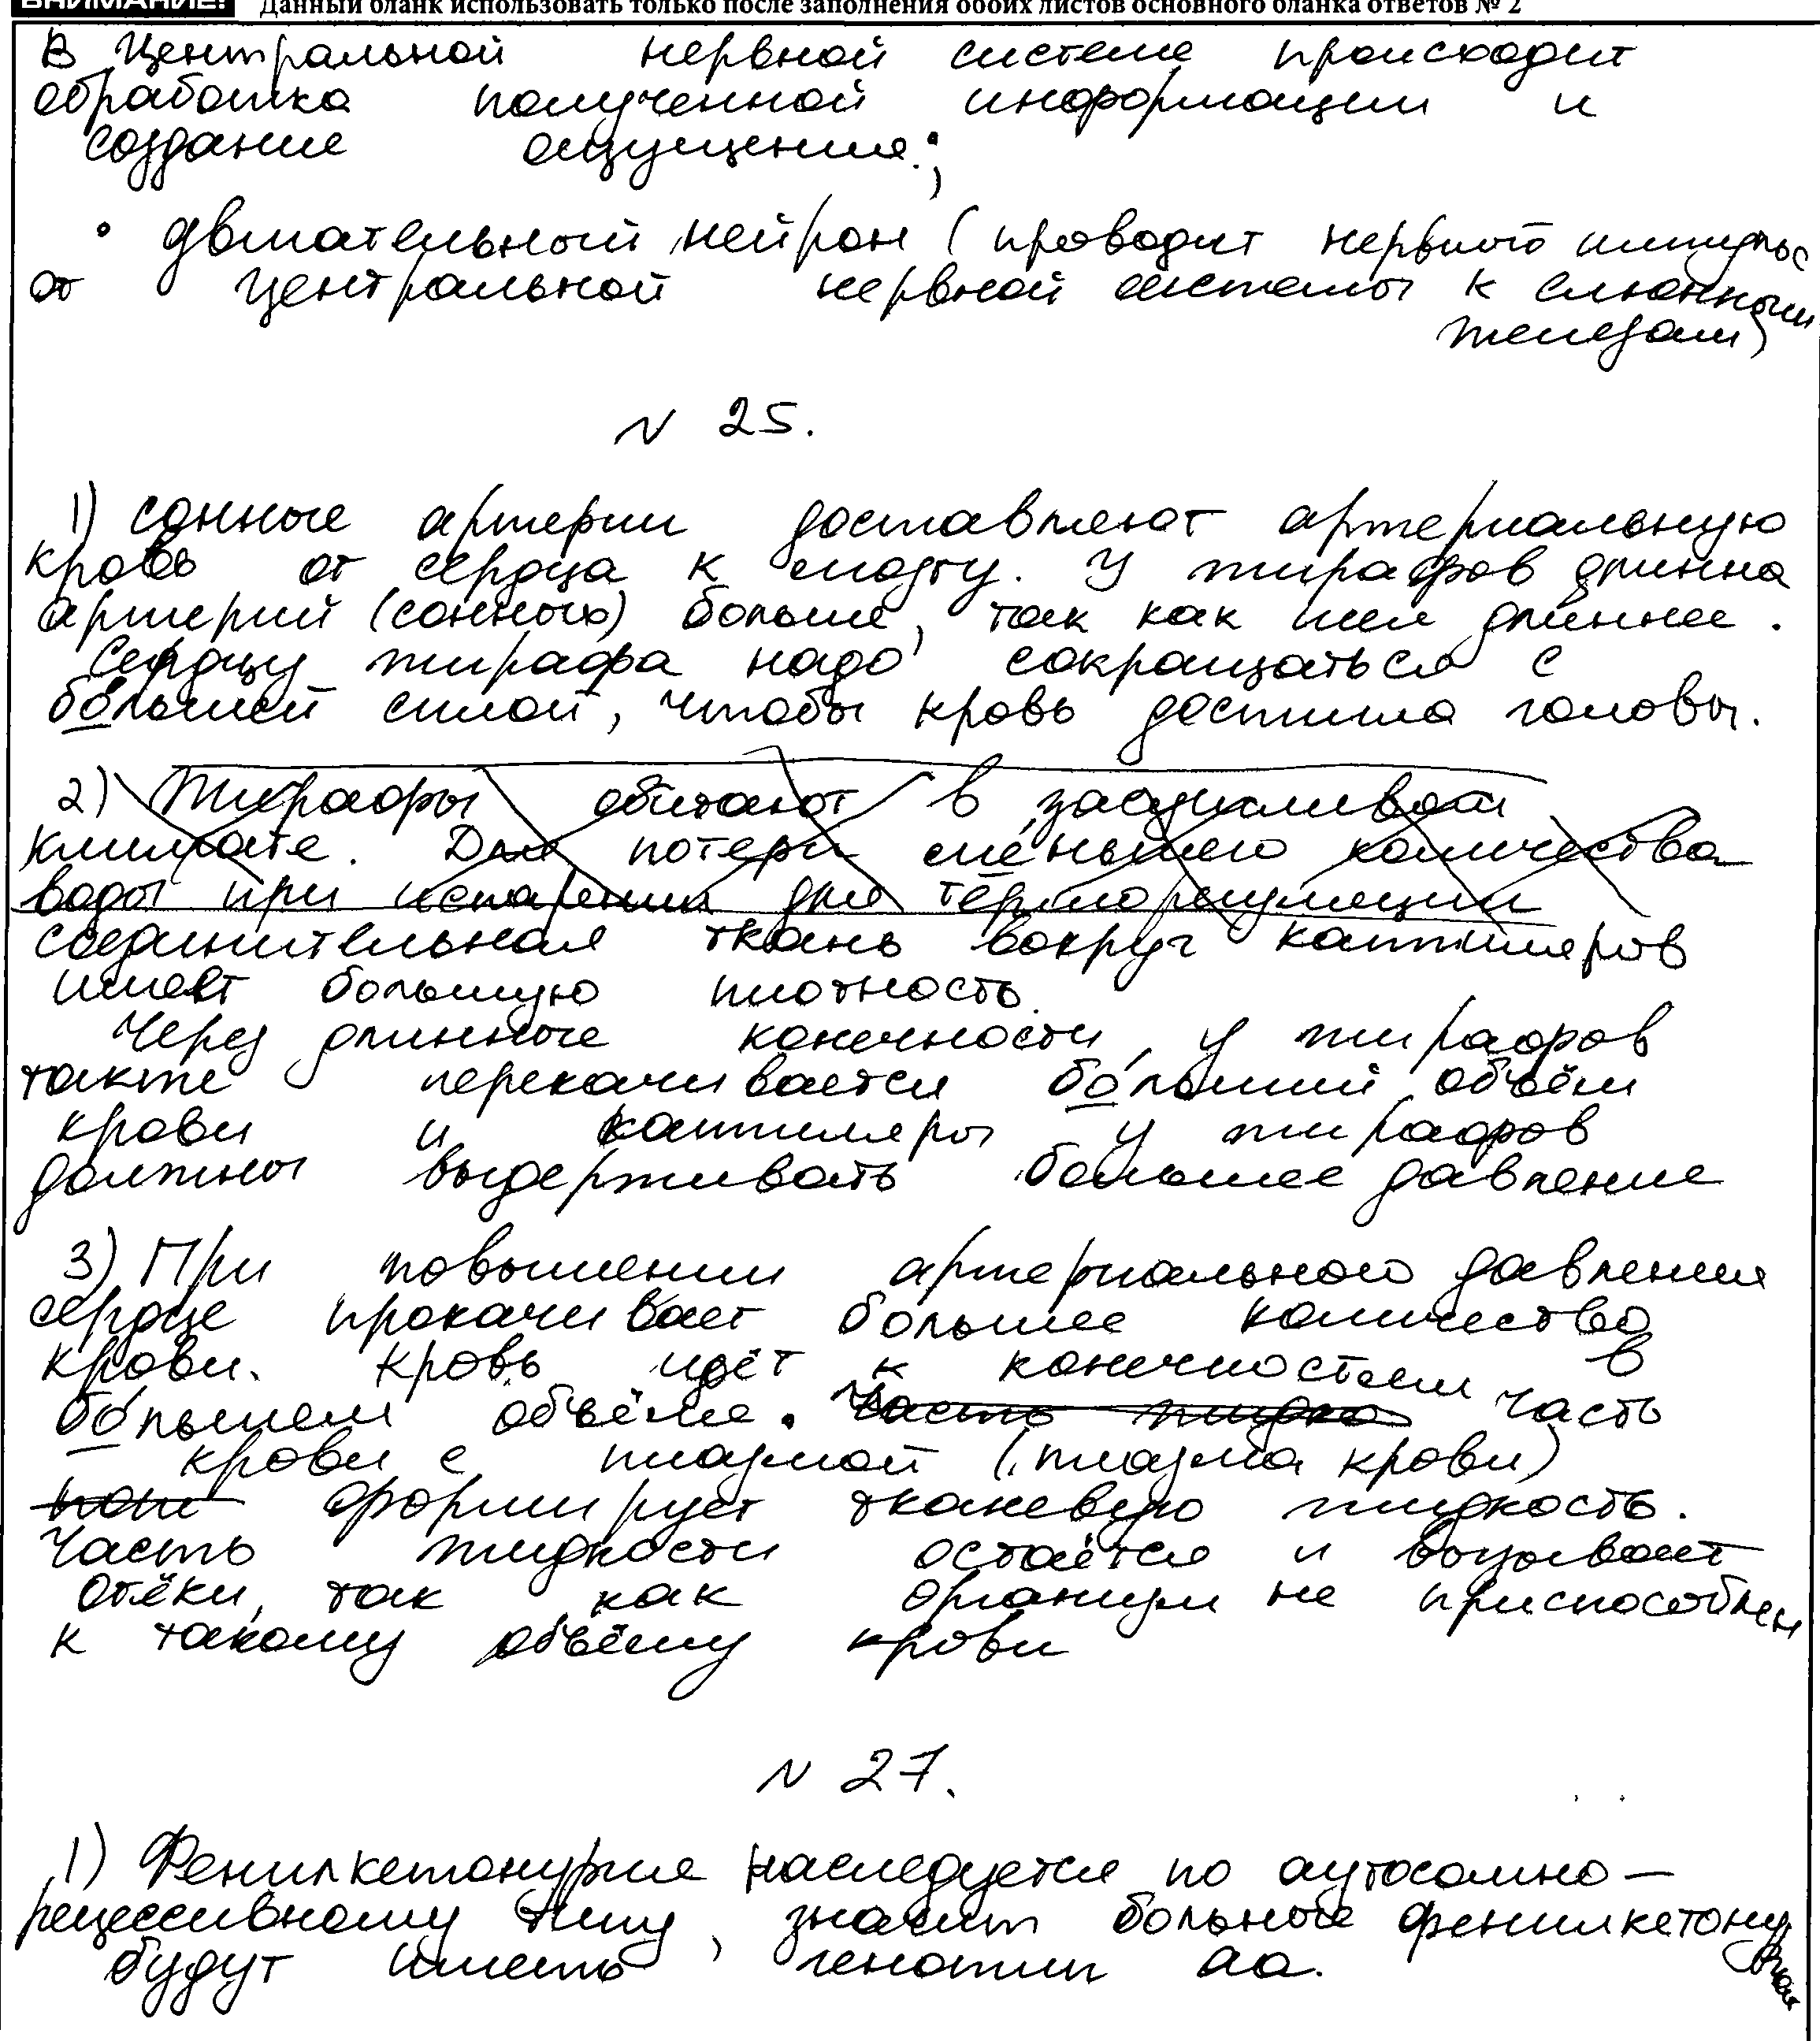 ВНИМАНИЕ! Данный бланк использовать только после заполнения обоих листов основного бланка ответов № 2
В центральной нервной системе происходит
обработка полученной информации и
создание ощущения.;
• двигательный нейрон (проводит нервный импульс
от центральной нервной системы к слюнным
железам)
N 25.
1) сонные артерии доставляют артериальную
кровь от сердца к мозгу. У жирафов длинна
артерий (сонных) больше, так как шея длиннее.
Сердцу жирафа надо сокращаться с
большей силой, чтобы кровь достигла головы.
2) Жирафы обитают в засушливом
климате. Для потери меньшего количества
воды при испарении для терморегуляции
соединительная ткань вокруг капилляров
имеет большую плотность.
Через длинные конечности у жирафов
также перекачивается больший объём
крови и капилляры у жирафов
должны выдерживать большее давление
3) При повышении артериального давления
сердце прокачивает большее количество
крови. Кровь идёт к конечностям в
большем объёме. Часть жидко часть
крови с плазмой (плазма крови)
формирует тканевую жидкость.
Часть жидкости остаётся и вызывает
отёки, так как организм не приспособлен
к такому объёму крови
N 27.
1) Фенилкетонурия наследуется по аутосомно-
рецессивному типу, значит больные фенилкетонурией
будут иметь генотип аа.